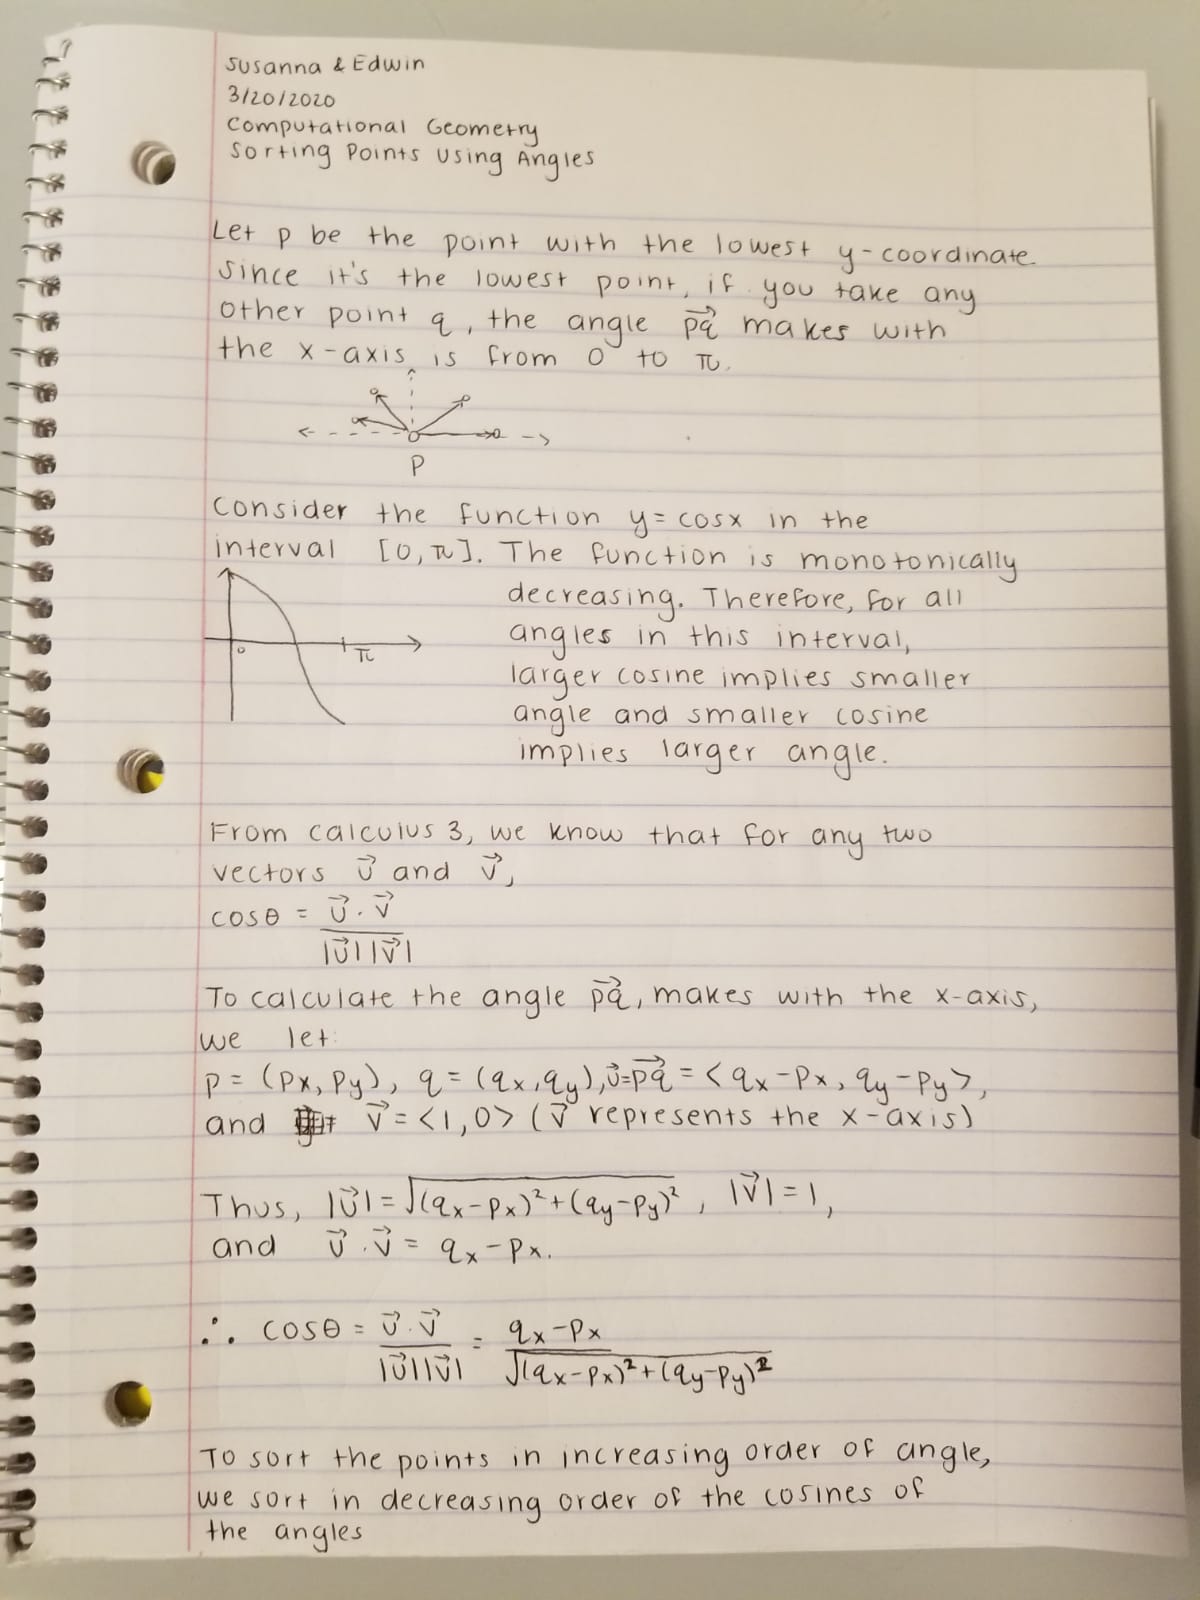 Susanna & Edwin
3/20/2020
Computational Geometry
Sorting Points Using Angles
Let p be the point with the lowest y-coordinate.
Since it's the lowest point, if you take any
other point q, the angle p⃗q⃗ makes with
the x-axis is from 0 to π.
P
Consider the function y = cosx in the
interval [0, π]. The function is monotonically
decreasing. Therefore, for all
angles in this interval,
0 π
larger cosine implies smaller
angle and smaller cosine
implies larger angle.
From calculus 3, we know that for any two
vectors u⃗ and v⃗,
cosθ = u⃗ · v⃗
|u⃗| |v⃗|
To calculate the angle p⃗q⃗, makes with the x-axis,
we let:
p = (px, py), q = (qx, qy), u⃗ = p⃗q⃗ = <qx-px, qy-py>,
and v⃗ = <1,0> (v⃗ represents the x-axis)
Thus, |u⃗| = √(qx-px)²+(qy-py)², |v⃗| = 1,
and u⃗ · v⃗ = qx-px.
∴ cosθ = u⃗ · v⃗ = qx-px
|u⃗||v⃗| √(qx-px)²+(qy-py)²
To sort the points in increasing order of angle,
we sort in decreasing order of the cosines of
the angles